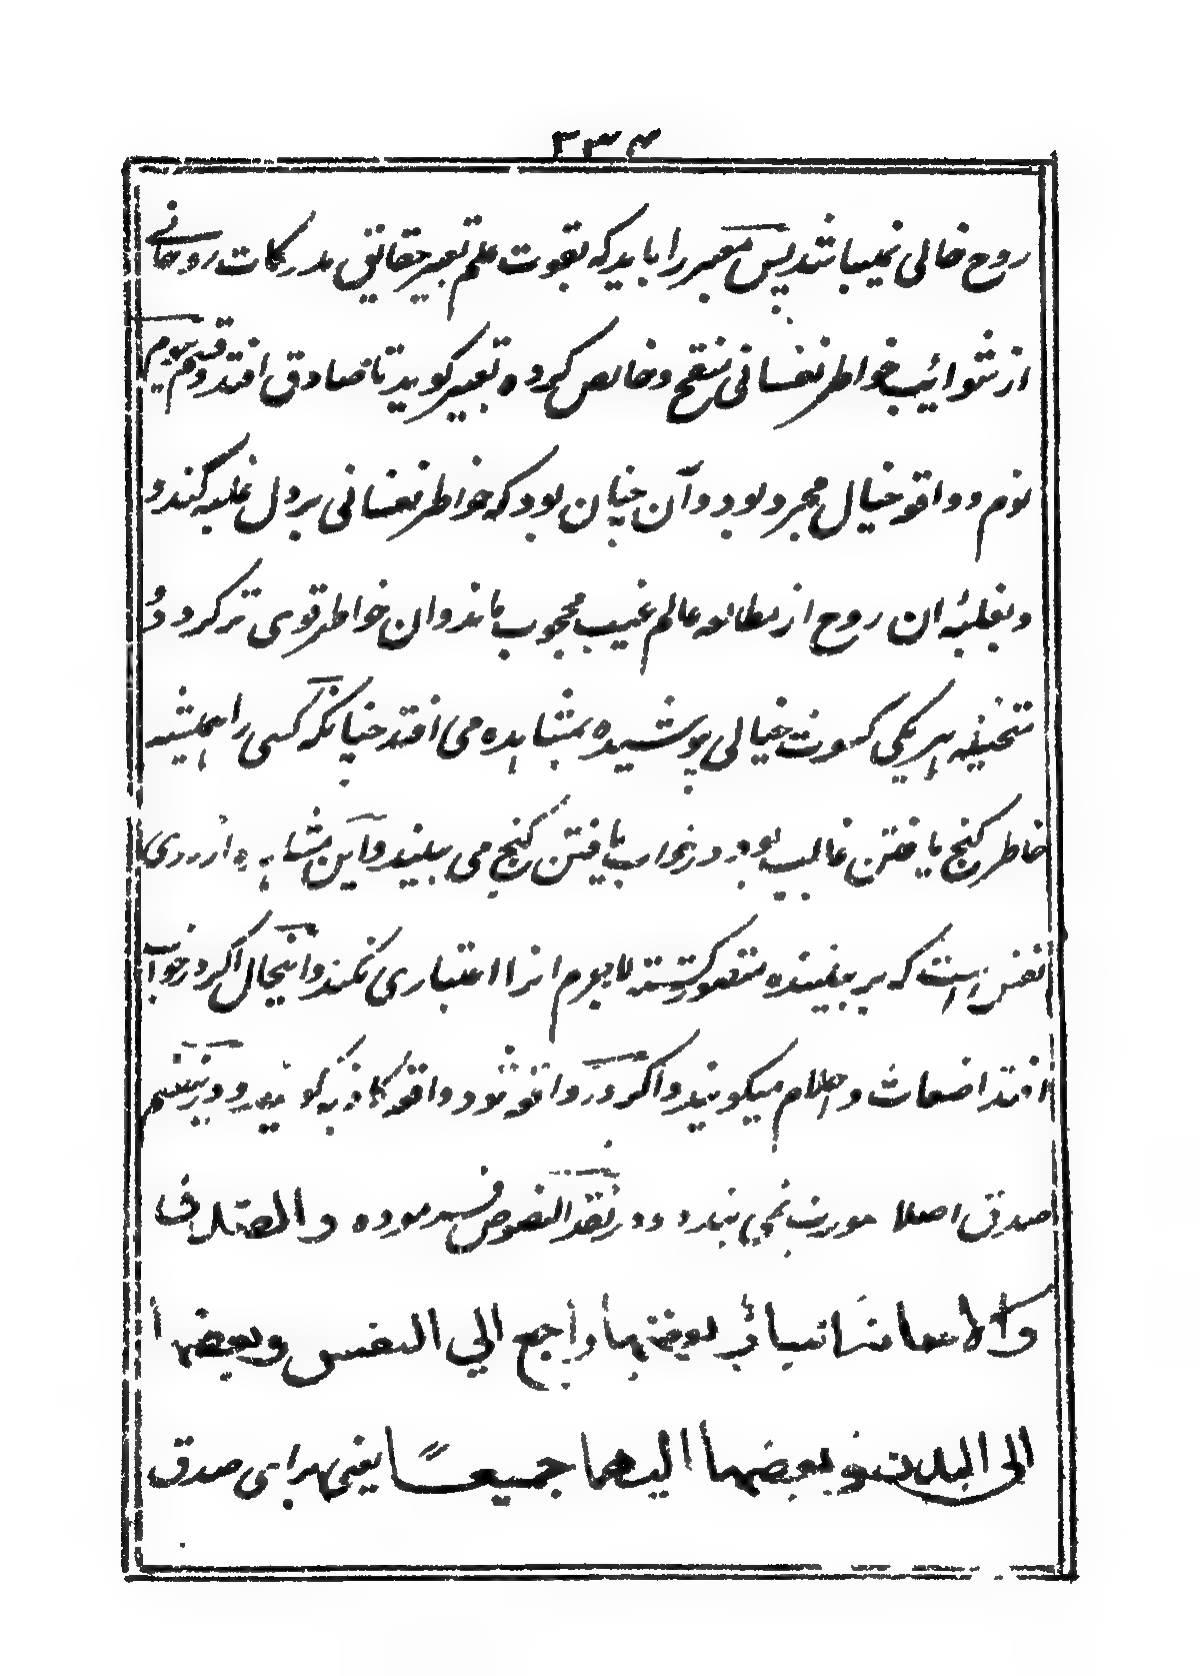 ۲۳۴
روح خالی نمیباشد پس معبر را باید که بقوت علم تعبیر حقایق مدرکات روحانے
از شوائب خواطر نفسانی منقح و خالص کرده تعبیر کوید تا صادق افتد و قسم سوم
نوم و واقعه خیال مجرد بود و آن چنان بود که خواطر نفسانی بر دل غلبه کند و
و بغلبهٔ ان روح از مطالعه عالم غیب محجوب ماند و ان خواطر قوی تر کردد و
متخیله هر یکی کسوت خیالی پوشیده بمشاهده می افتد چنانکه کسی را همیشه
خاطر کنج یافتن غالب بود در خواب یافتن کنج می بیند و این مشاهده ارزوی
نفس است که بر بیننده متصور کشته لاجرم انرا اعتباری نکنند و اینحال اکر در خواب
افتد اضغاث و احلام میکویند و اکر در واقعه شود واقعه کاذبه کویند و درین قسم
صدق اصلا صورت نمی بندد و در نقد النصوص فرموده و الصدق
و الاصابة اسباب بعضها راجع الی النفس و بعضها
الی البدن و بعضها الیهما جمیعًا یعنی برای صدق